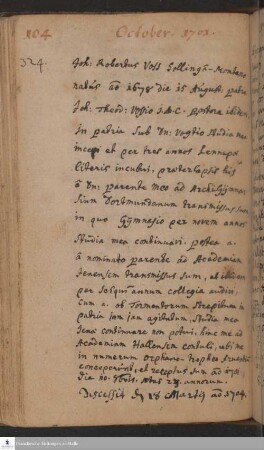 104
October. 1701.
324.
Joh: Robertus Voss Sollinga-Montano
natus aō 1678 die 15 August. patre
Joh: Theod: Vossio pastore ibidem,
In patria sub Dn: Voystio studia mea
incepi et per tres annos Lennepae
literis incubui. praeterlapsis his
a Dn: parente meo ad Archi-Gymna-
sium Dortmundanum transmissus sum
in quo Gymnasio per novem annos
studia mea continuavi. postea a
nominato parente ad Academiam
Jenensem transmissus sum, et ibidem
per sesqui annum collegia audivi.
Cum a. ob Tormentorum strepitum in
patria jam jam agitandum, studia mea
Jenae continuare non potui, hinc me ad
Academiam Hallensem contuli, ubi me
in numerum orphano-tropheo
et receptus sum aō 1701
die 20. aetas 23 annorum.
Discessit d 18 Martij aō 1704.